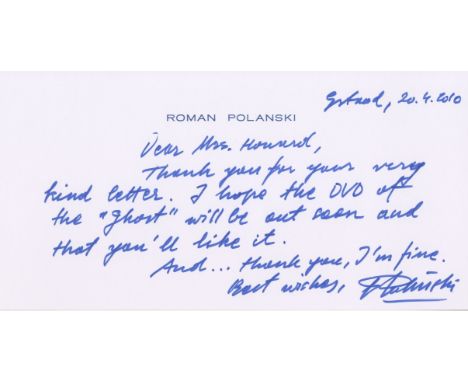 Gstaad, 20.4.2010
ROMAN POLANSKI
Dear Mrs. Howard,
Thank you for your very
kind letter. I hope the DVD of
the "Ghost" will be out soon and
that you'll like it.
And... thank you, I'm fine.
Best wishes, RPolański